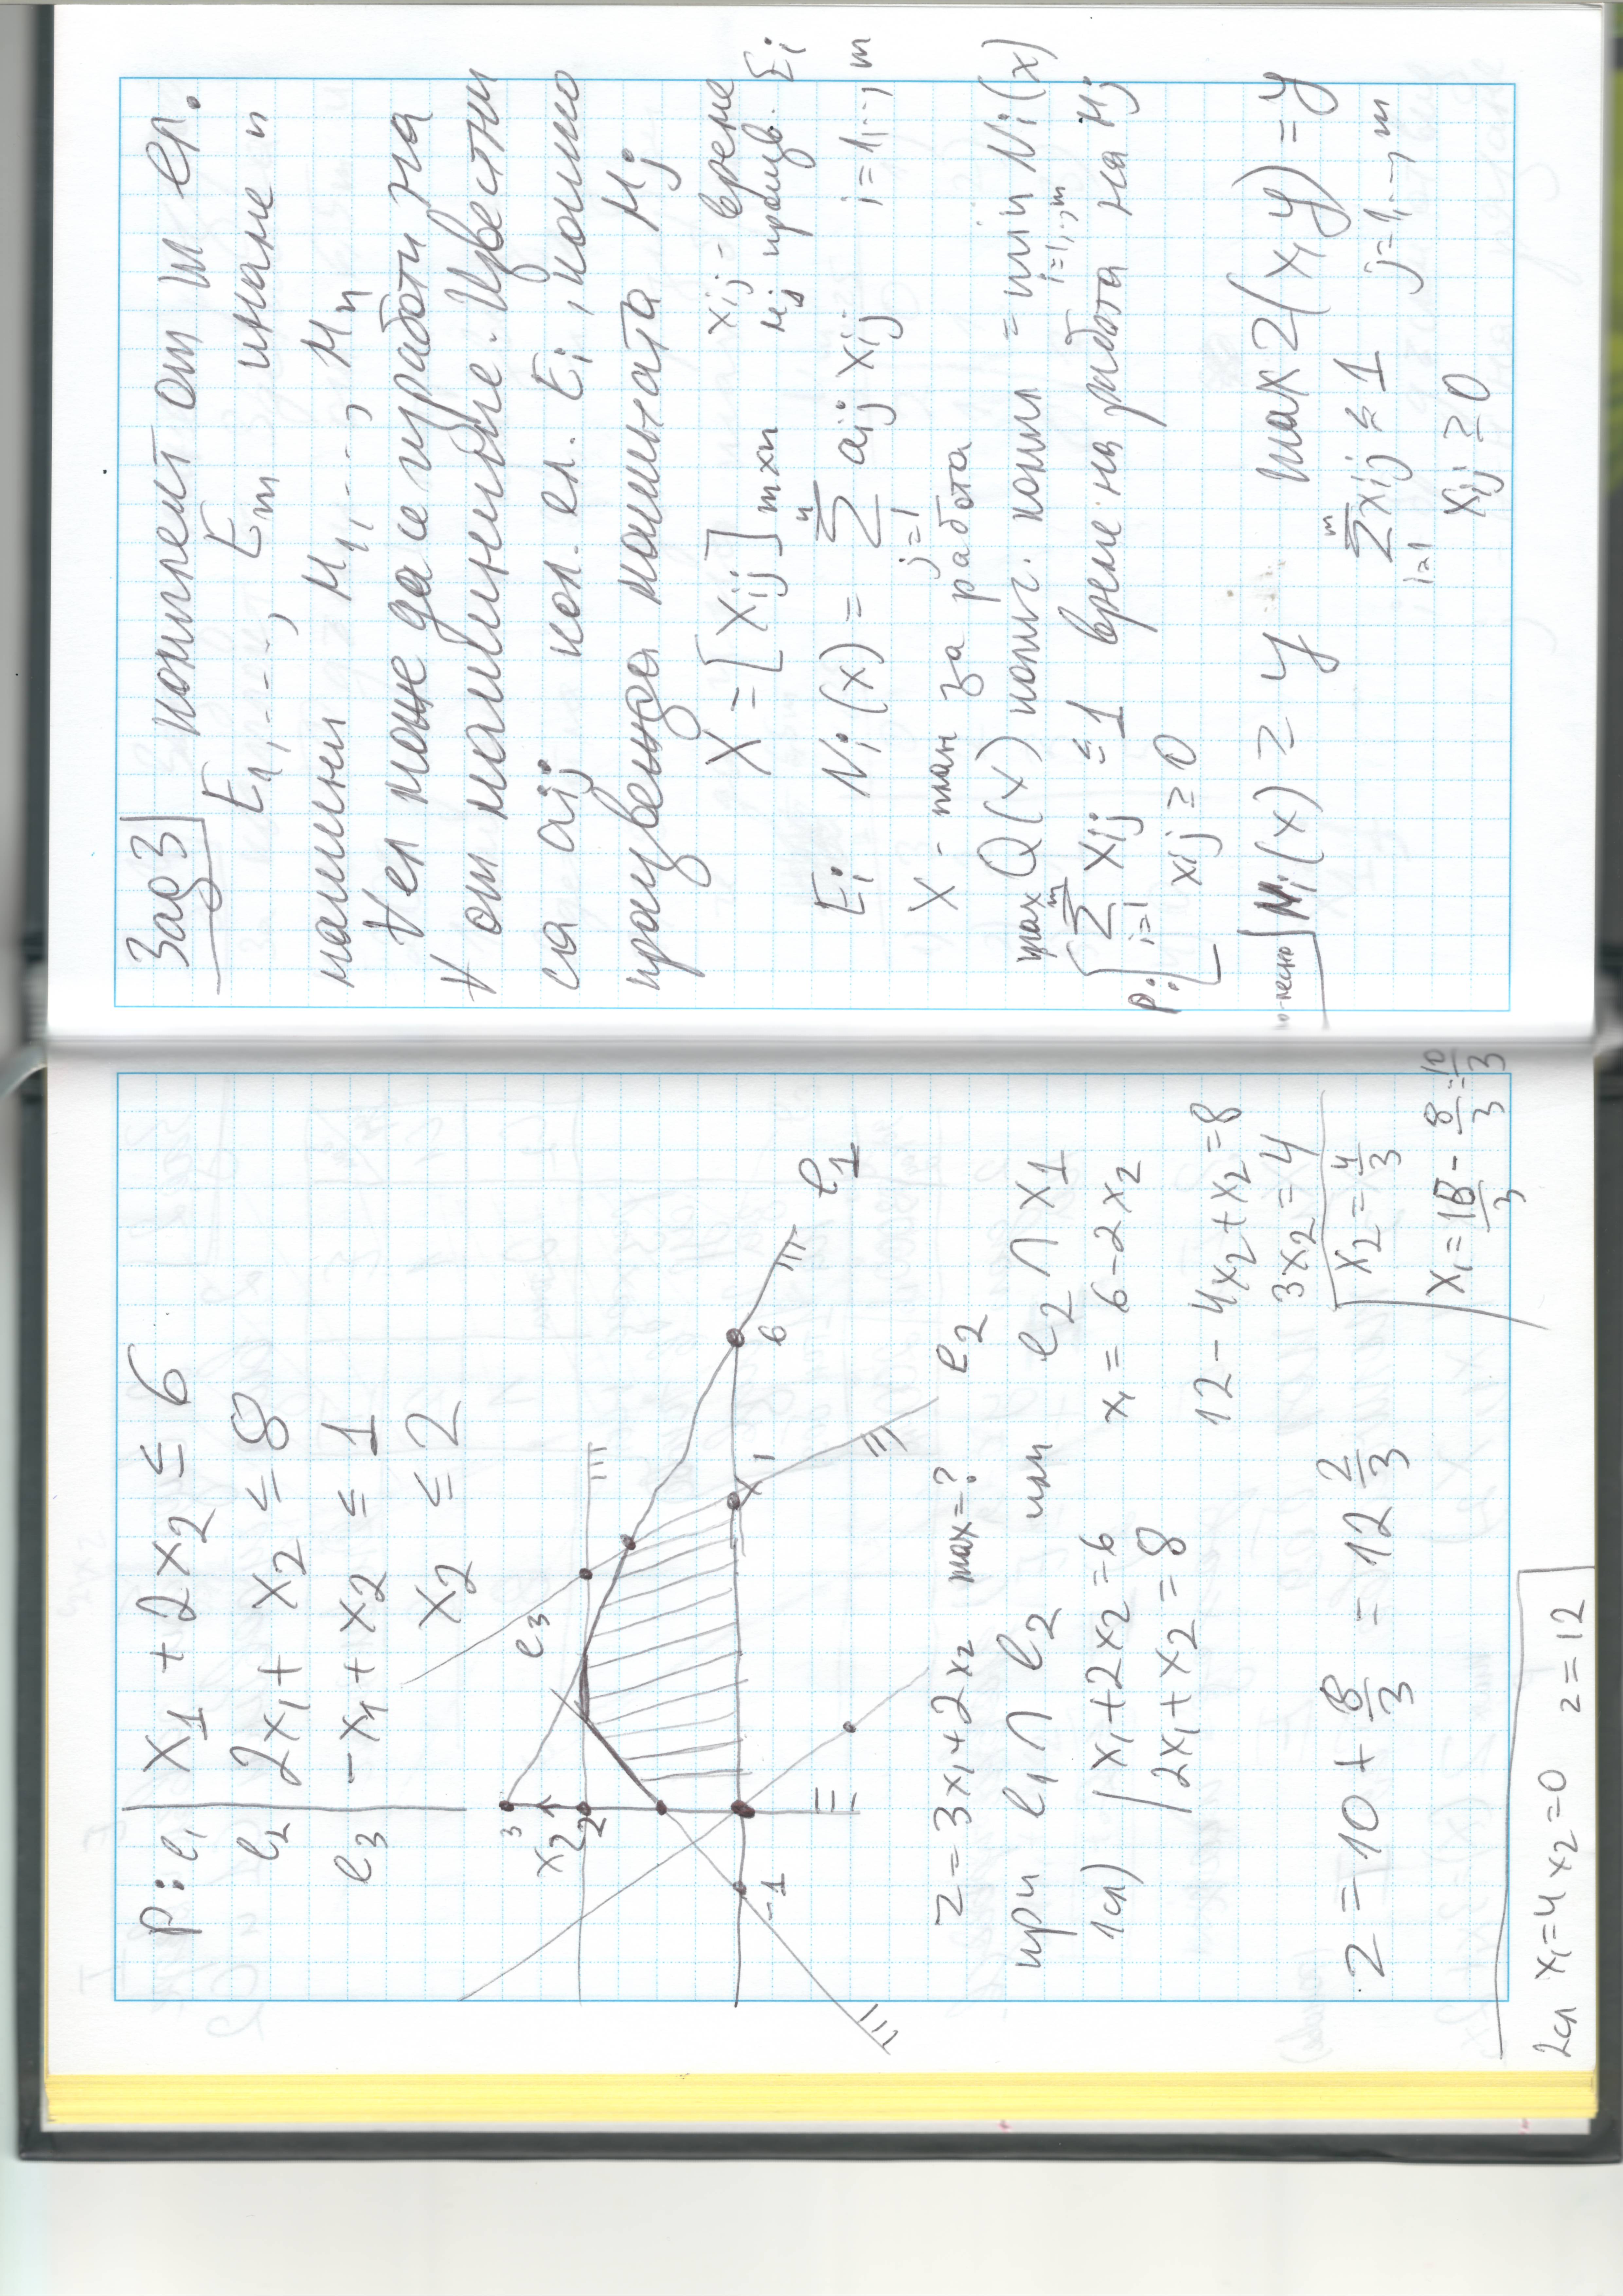 P: l₁ | x₁ + 2x₂ ≤ 6
l₂ 2x₁ + x₂ ≤ 8
l₃ -x₁ + x₂ ≤ 1
x₂ ≤ 2
3
x₂
2
l₃
-1
1
6
l₁
l₂
z = 3x₁ + 2x₂ max = ?
при l₁ ∩ l₂ или l₂ ∩ x₁
1сл) | x₁ + 2x₂ = 6 x₁ = 6 - 2x₂
| 2x₁ + x₂ = 8
12 - 4x₂ + x₂ = 8
3x₂ = 4
z = 10 + 8/3 = 12 2/3 x₂ = 4/3
x₁ = 18/3 - 8/3 = 10/3
2сл x₁ = 4 x₂ = 0 z = 12
Зад 3 комплект от m ел.
E₁, ..., Eₘ имаме n
машини M₁, ..., Mₙ
∀ ел може да се изработи на
∀ от машините. Известни
са aᵢⱼ кол. ел. Eᵢ, които
произвежда машината Mⱼ
X = [xᵢⱼ] m×n xᵢⱼ - време
Mⱼ произв. Eᵢ
Eᵢ Nᵢ(x) = ∑ⱼ₌₁ⁿ aᵢⱼ xᵢⱼ i = 1, .., m
X - план за работа
max Q(x) компл. = min Nᵢ(x) i=1,..,m
P: | ∑ᵢ₌₁ᵐ xᵢⱼ ≤ 1 време на работа на Mⱼ
xᵢⱼ ≥ 0
Nᵢ(x) ≥ y max z(x, y) = y
∑ᵢ₌₁ᵐ xᵢⱼ ≤ 1 j = 1, .., m
xᵢⱼ ≥ 0